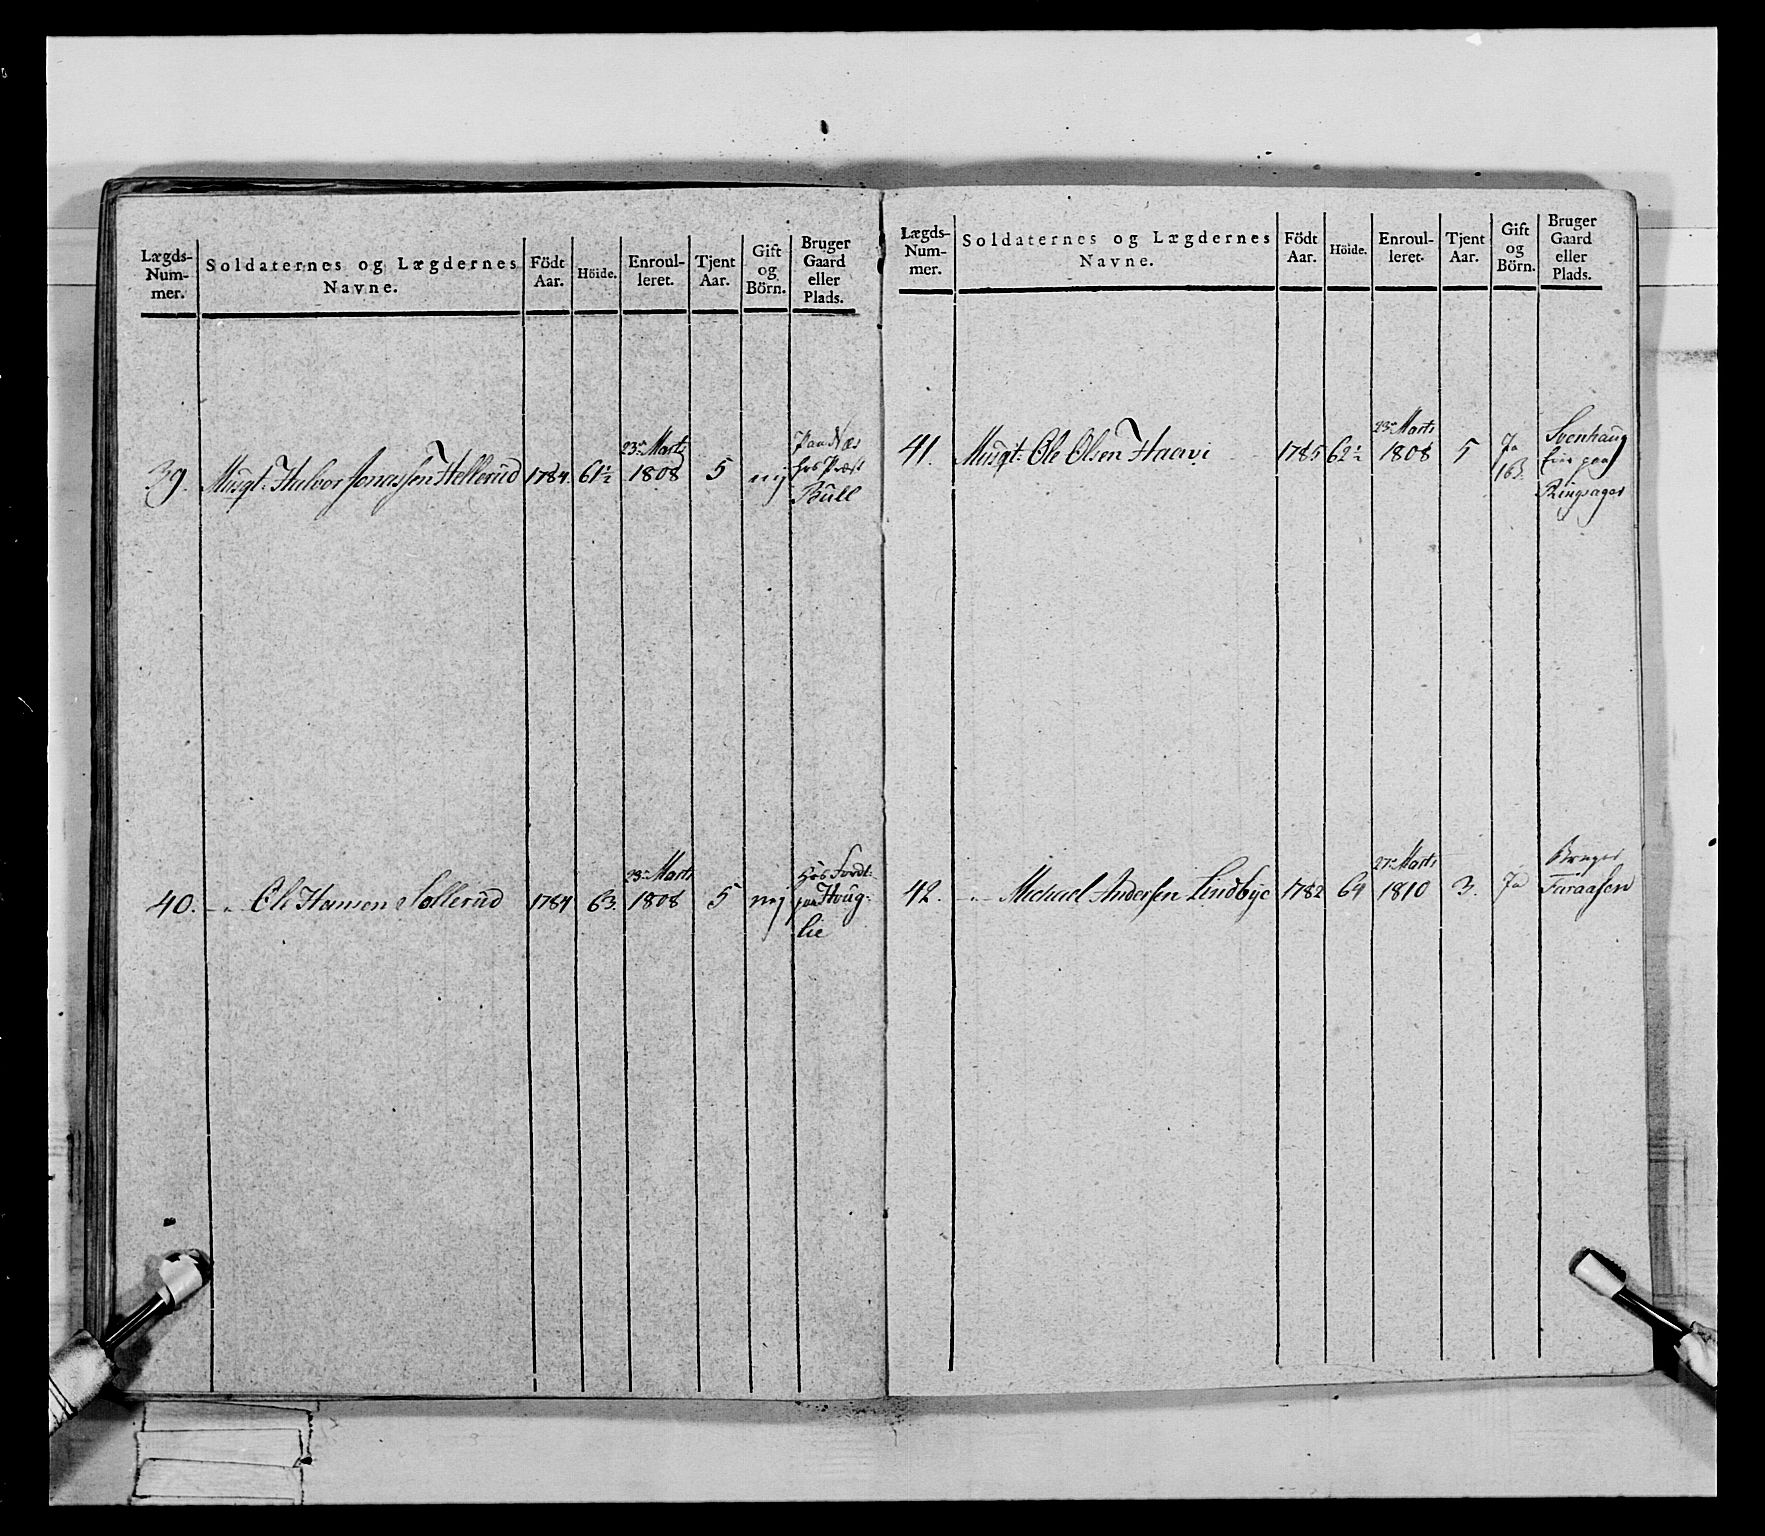 Lægds-
Num-
mer.
Soldaternes og Lægdernes
Navne.
Födt
Aar.
Höide.
Enroul-
leret.
Tjent
Aar.
Gift
og
Börn.
Bruger
Gaard
eller
Plads.
39. Musqt. Halvor Jonassen Hellerud 1784 61½ 23de Marts 1808 5 nej
hos Præst
Bull
40. -„- Ole Hansen Sollerud 1784 63. 23de Marts 1808 5 nej
Hos
paa Houg-
lie
Lægds-
Num-
mer.
Soldaternes og Lægdernes
Navne.
Födt
Aar.
Höide.
Enroul-
leret.
Tjent
Aar.
Gift
og
Börn.
Bruger
Gaard
eller
Plads.
41. Musqt: Ole Olsen Haavi 1785 62½ 23de Marts 1808 5 Ja
1 B.
Svenhaug
Eier paa
Ringsager
42. -„- Michael Andersen Lindbye 1782 64 27de Marts 1810 3. Ja
Bruger
Furaasen